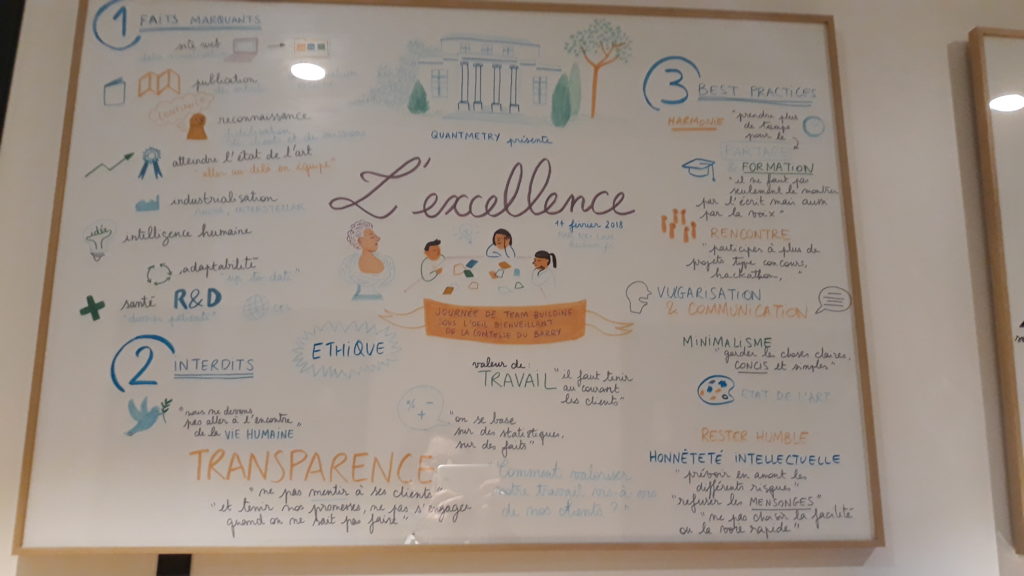 1 FAITS MARQUANTS
site web
publication
reconnaissance
atteindre l'état de l'art
"aller au delà en équipe"
industrialisation
idée
intelligence humaine
adaptabilité
"up to date"
santé R&D
2 INTERDITS
"nous ne devons
pas aller à l'encontre
de la VIE HUMAINE"
TRANSPARENCE
"ne pas mentir à ses clients"
"et tenir nos promesses, ne pas s'engager
quand on ne sait pas faire"
QUANTMETRY présente
L'excellence
14 février 2018
JOURNÉE DE TEAM BUILDING
SOUS L'OEIL BIENVEILLANT
DE LA COMTESSE DU BARRY
ETHIQUE
valeur de :
TRAVAIL "il faut tenir
au courant
les clients"
% -
+
"on se base
sur des statistiques,
sur des faits"
"Comment valoriser
notre travail vis à vis
de nos clients ?"
3 BEST PRACTICES
HARMONIE "prendre plus
de temps
pour le
PARTAGE
& FORMATION
"il ne faut pas
seulement le montrer
par l'écrit mais aussi
par la voix"
RENCONTRE
"participer à plus de
projets type concours,
hackathon, "
VUGARISATION
& COMMUNICATION
MINIMALISME
"garder les choses claires,
CONCIS et simples"
ETAT DE L'ART
RESTER HUMBLE
HONNÊTETÉ INTELLECTUELLE
"prévoir en amont les
différents risques"
"refuser les MENSONGES"
"ne pas choisir la facilité
ou la voie rapide"